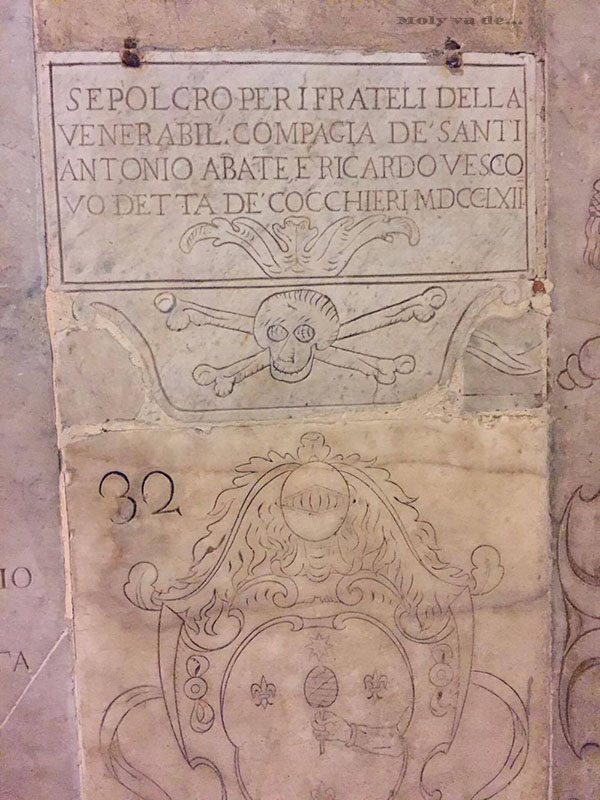 Moly va de...
SEPOLCRO·PER I FRATELI DELLA
VENERABIL. COMPAGIA DE' SANTI
ANTONIO ABATE, E RICARDO VESCO
VO DETTA DE' COCCHIERI MDCCLXII
32
IO
TA